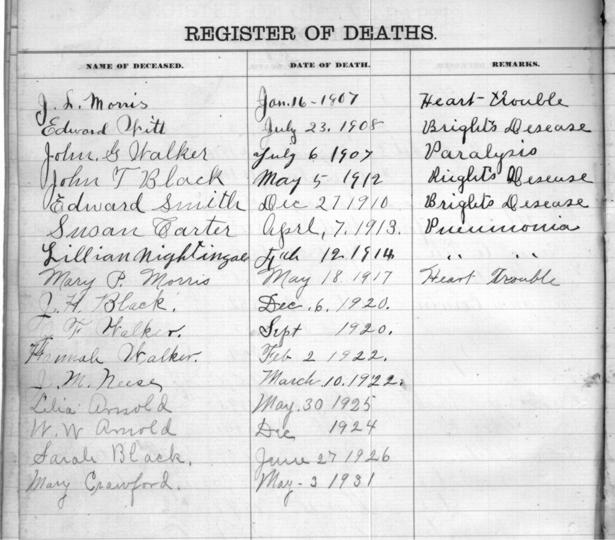 REGISTER OF DEATHS.
NAME OF DECEASED. DATE OF DEATH. REMARKS.
J. L. Morris Jan. 16 - 1907 Heart trouble
Edward Witt July 23. 1908 Brights Desease
John. G Walker July 6 1907 Paralysis
John T Black May 5 1912 Brights Desease
Edward Smith Dec 27 1910. Brights Desease
Susan Carter April, 7. 1913. Pneumonia
Lillian Nightingale 12. 1914 " "
Mary P. Morris May 18. 1917 Heart trouble
J. H. Black. Dec. 6. 1920.
F. Walker. Sept 1920.
Hannah Walker. Feb 2 1922.
J. M. Neese March. 10. 1922.
Lelia Arnold May. 30 1925
W. W Arnold Dec 1924
Sarah Black. June 27 1926
Mary Crawford. May - 3 1931